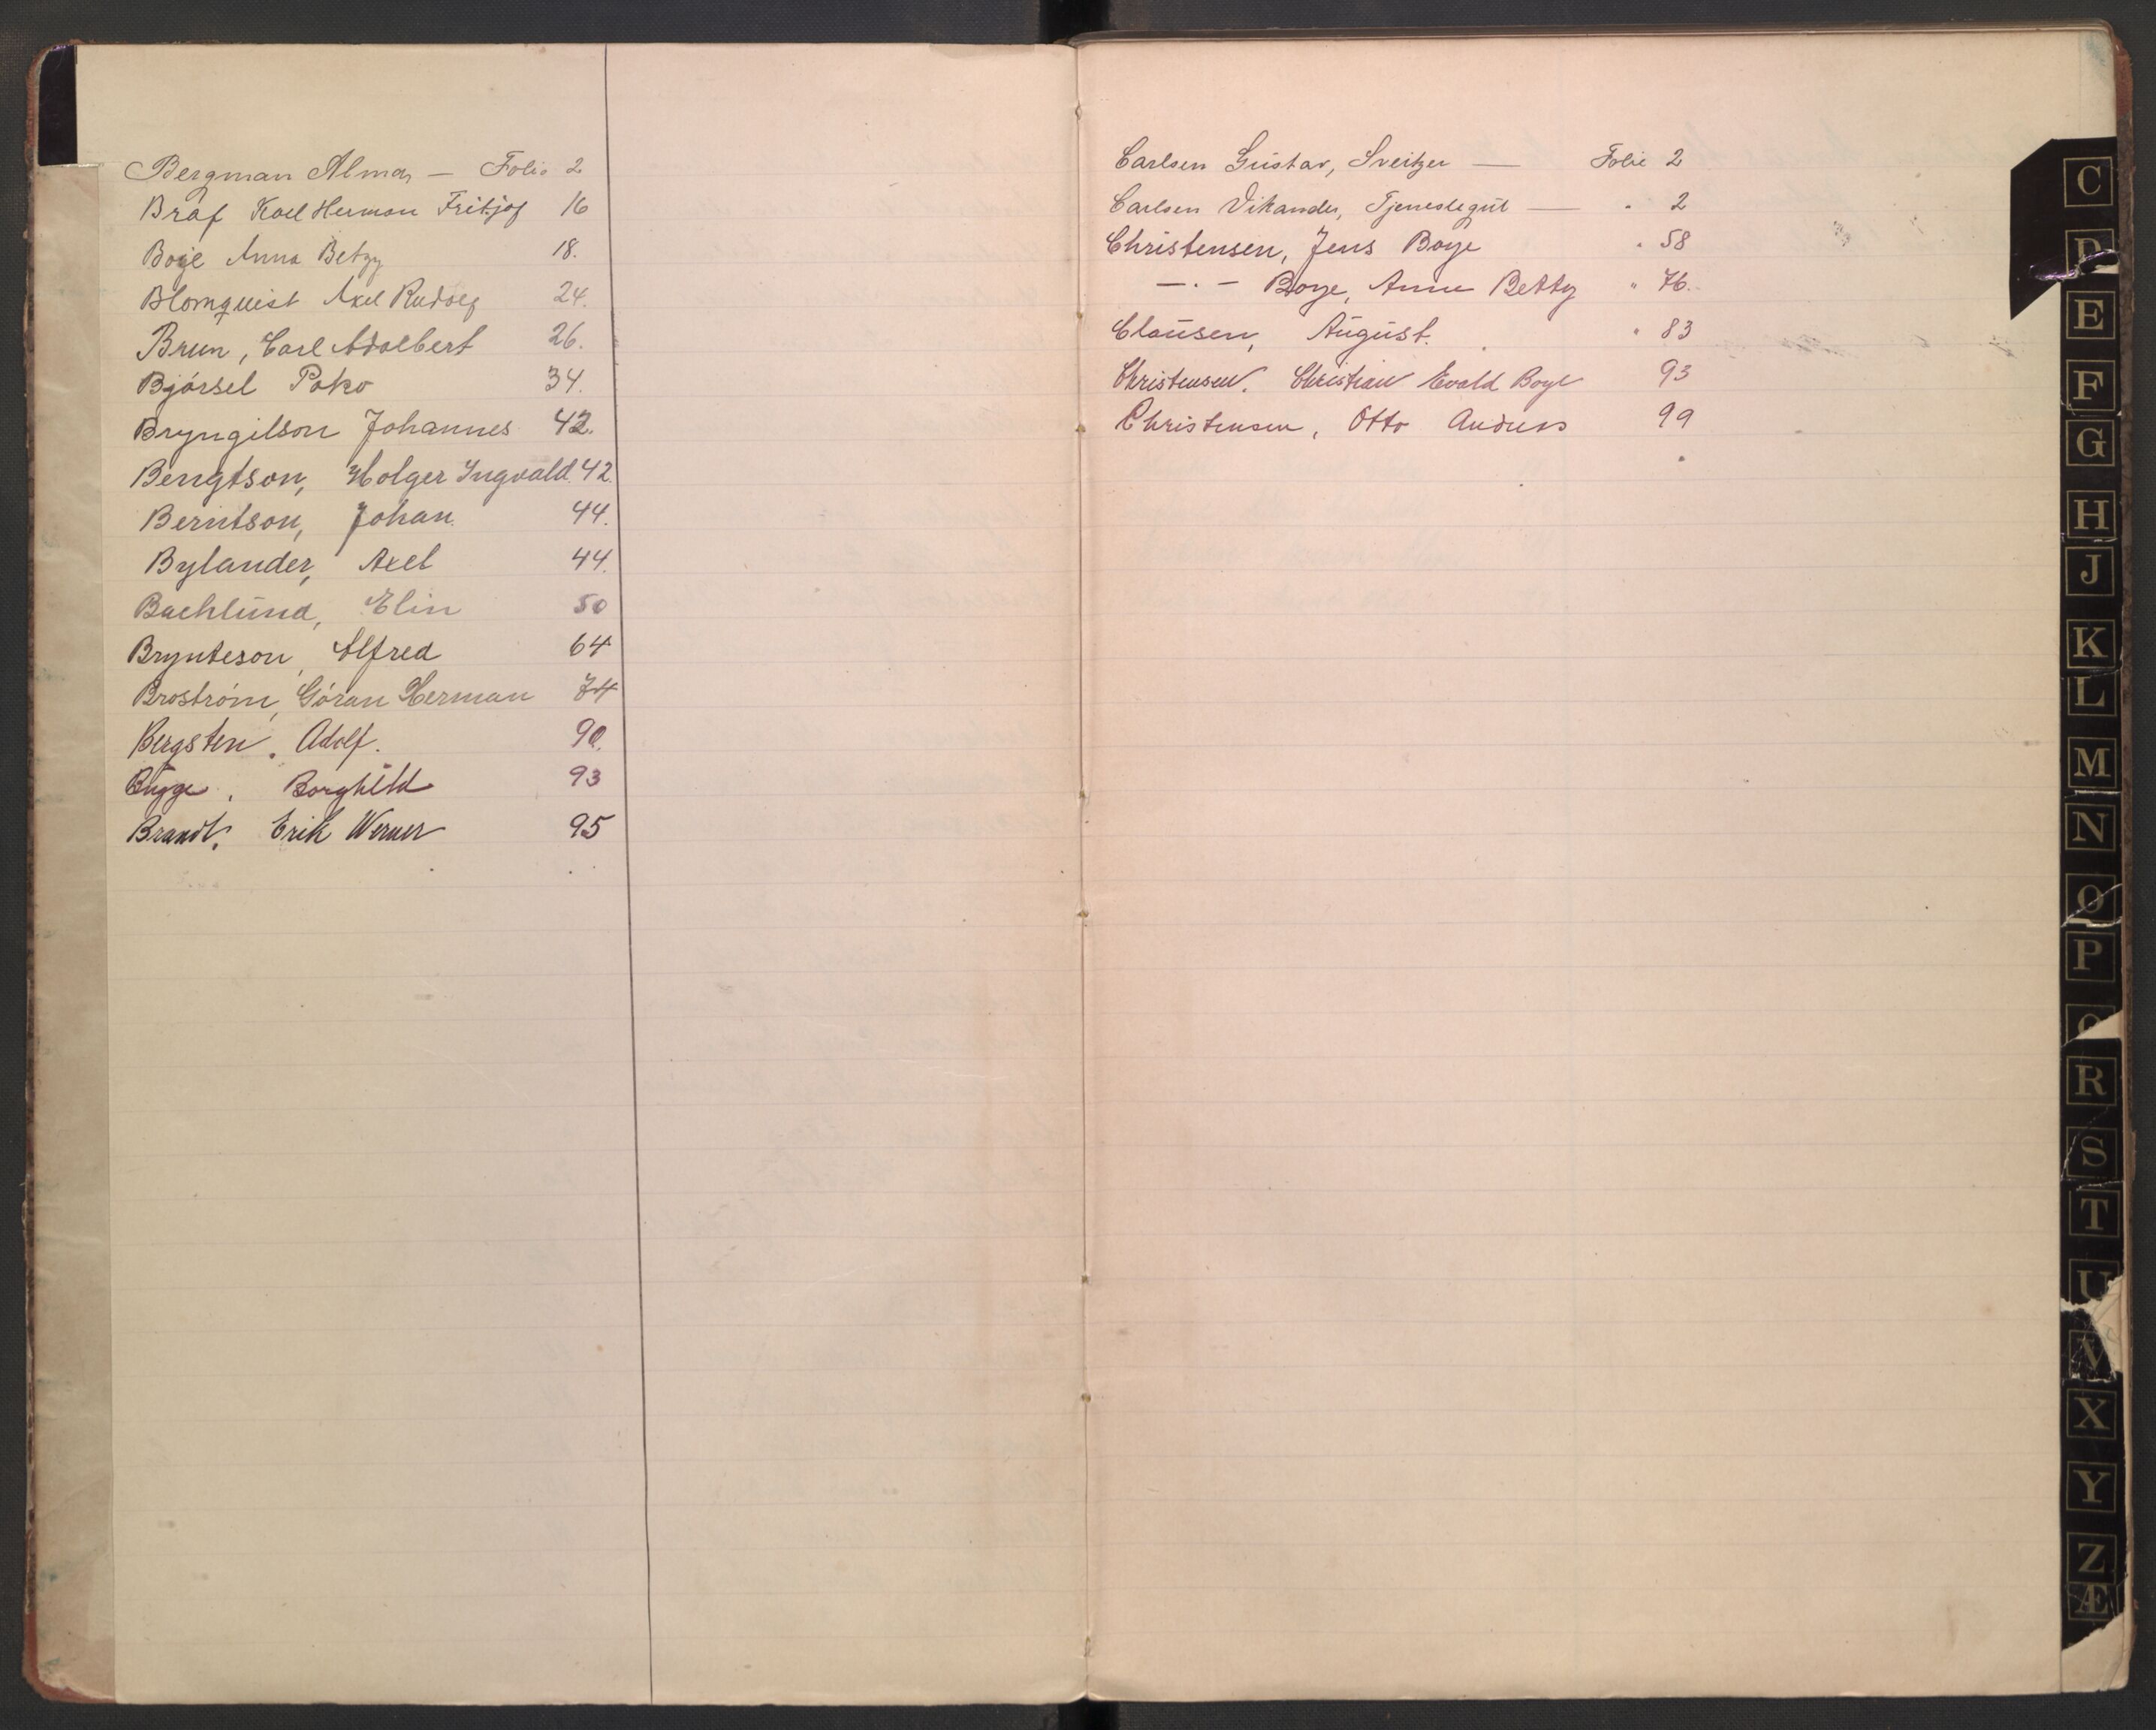 Bergman Alma, — Folio 2
Braf Karl Herman Fritjof 16
Boye Anna Betzy 18.
Blomquist Axel Rudolf 24.
Brun, Carl Adalbert 26.
Bjórsel 34.
Bryngilson Johannes 42.
Bengtson, Holger Ingvald. 42.
Berntson, Johan. 44.
Bylander, Axel 44.
Bachlund, Elin 50
Brynteson, Alfred 64
Broström, Göran Herman 74
Bergsten, Adolf. 90.
Bügge, Borghild 93
Brandt, Erik Werner 95
Carlsen Gustav, Sveitzer — Folie 2
Carlsen Vikander, Tjenestegut — " 2
Christensen, Jens Boye " 58
—·— Boye, Anna Betty " 76.
Clausen, August. " 83
Christensen. Christian Evald Boye 93
Christensen, Otto Anders 99
C
D
E
F
G
H
J
K
L
M
N
O
P
R
S
T
U
V
X
Y
Z
Æ